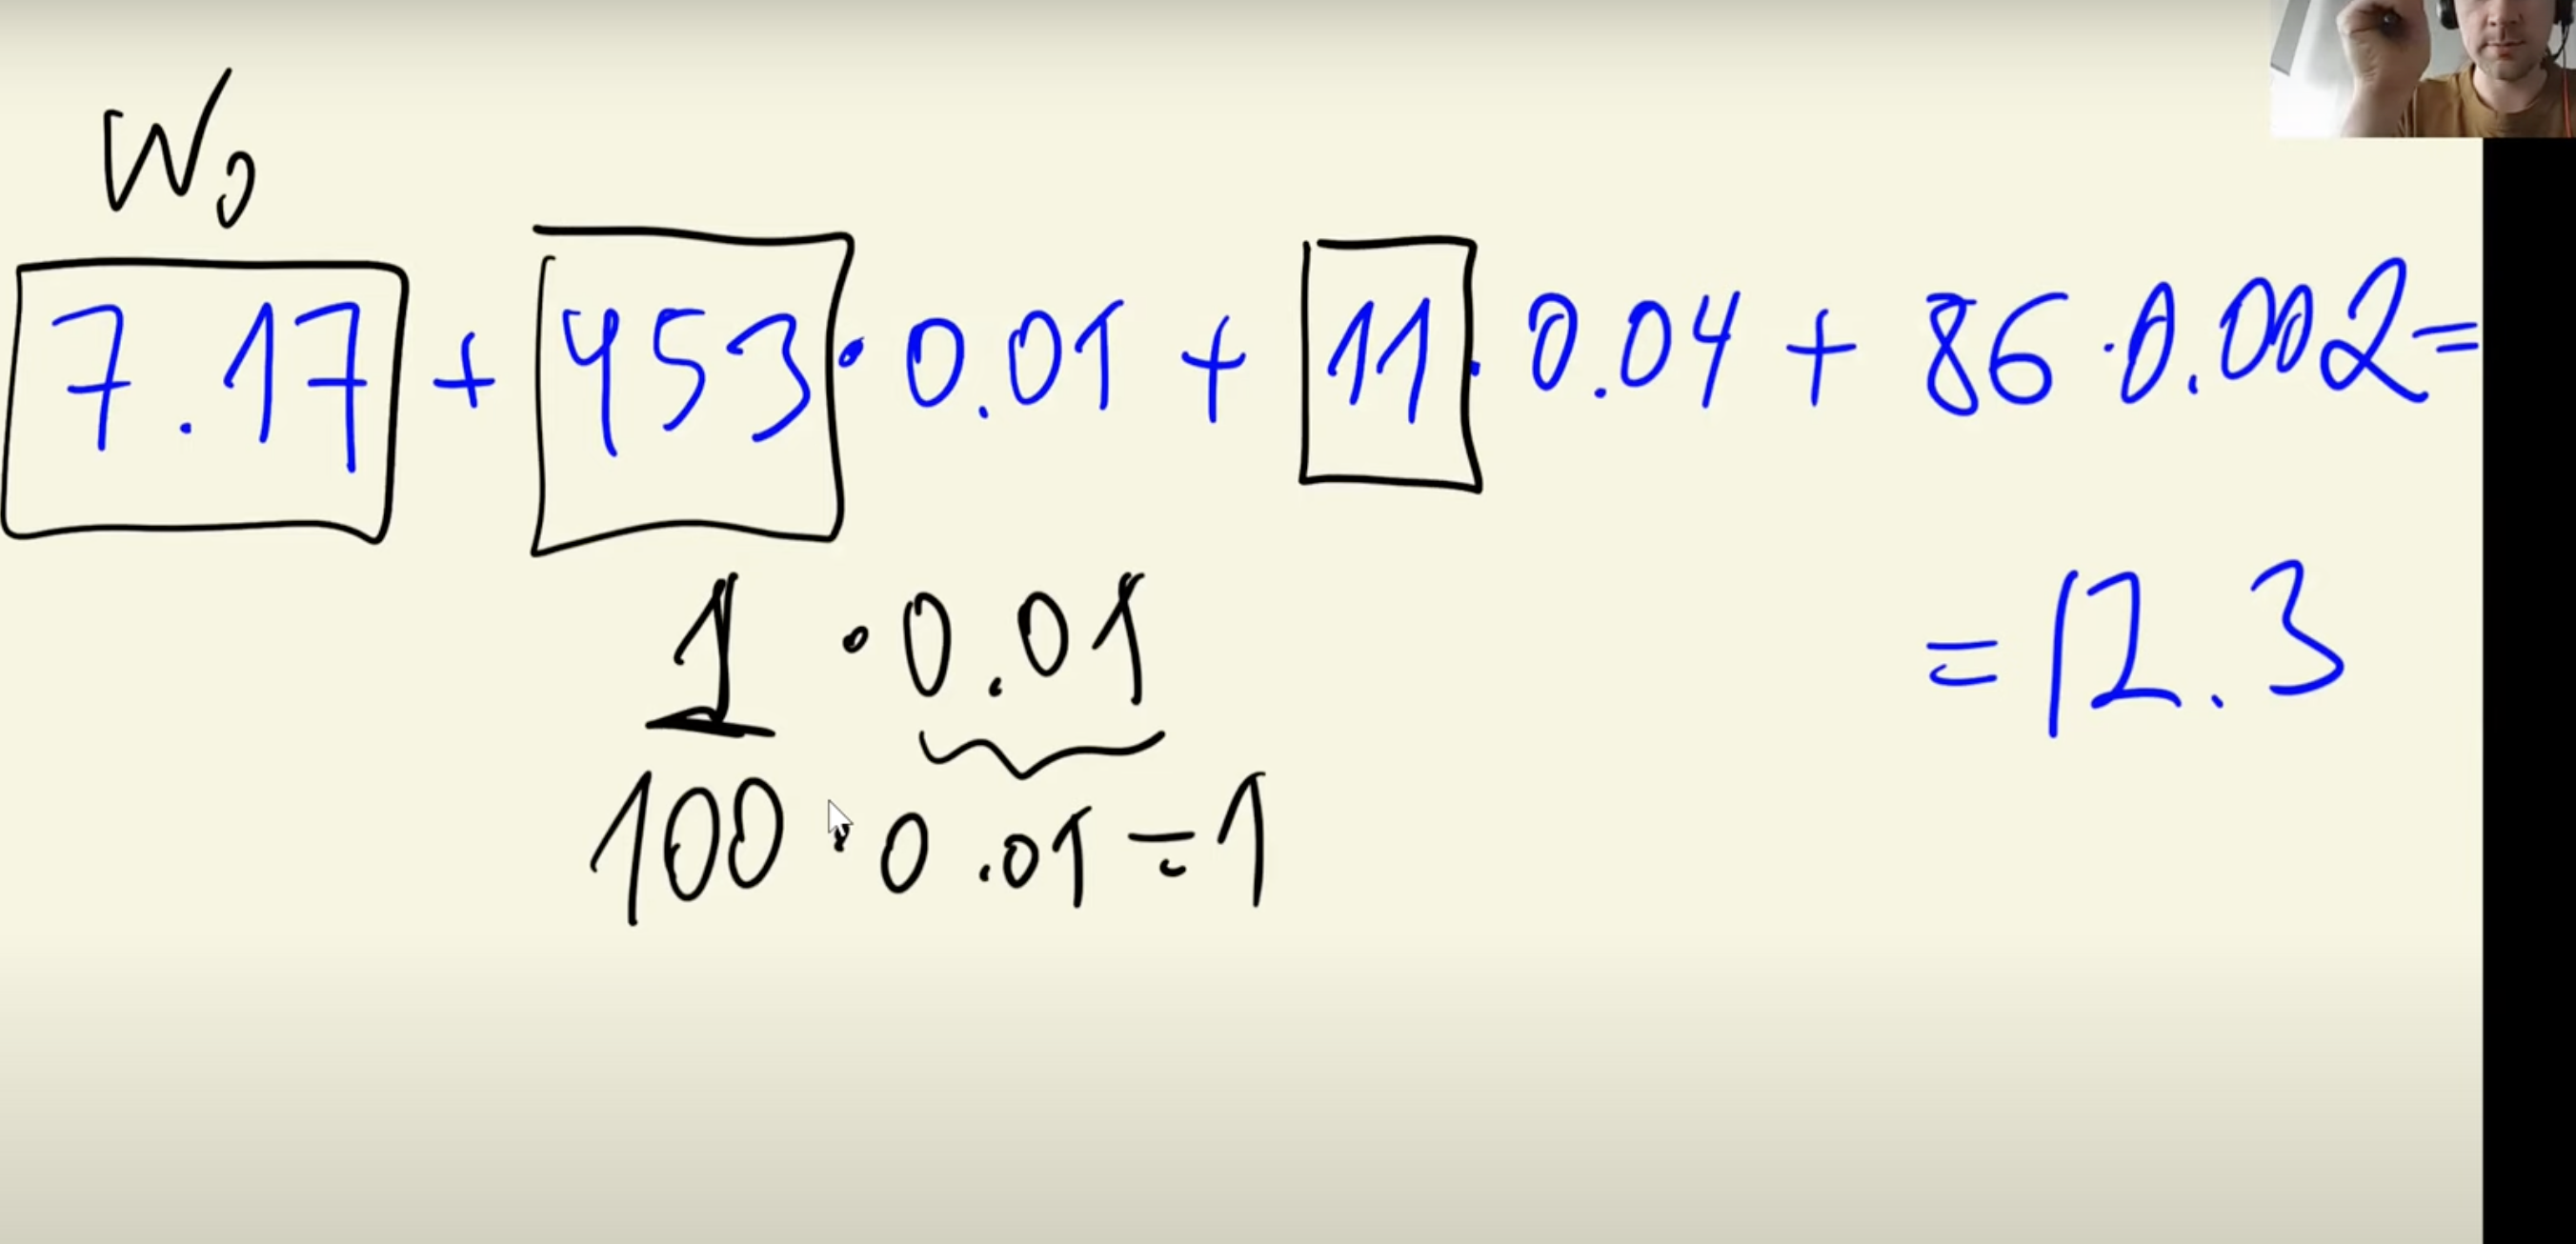 W0
7.17 + 453 · 0.01 + 11 · 0.04 + 86 · 0.002 =
= 12.3
1 · 0.01
100 · 0.01 = 1